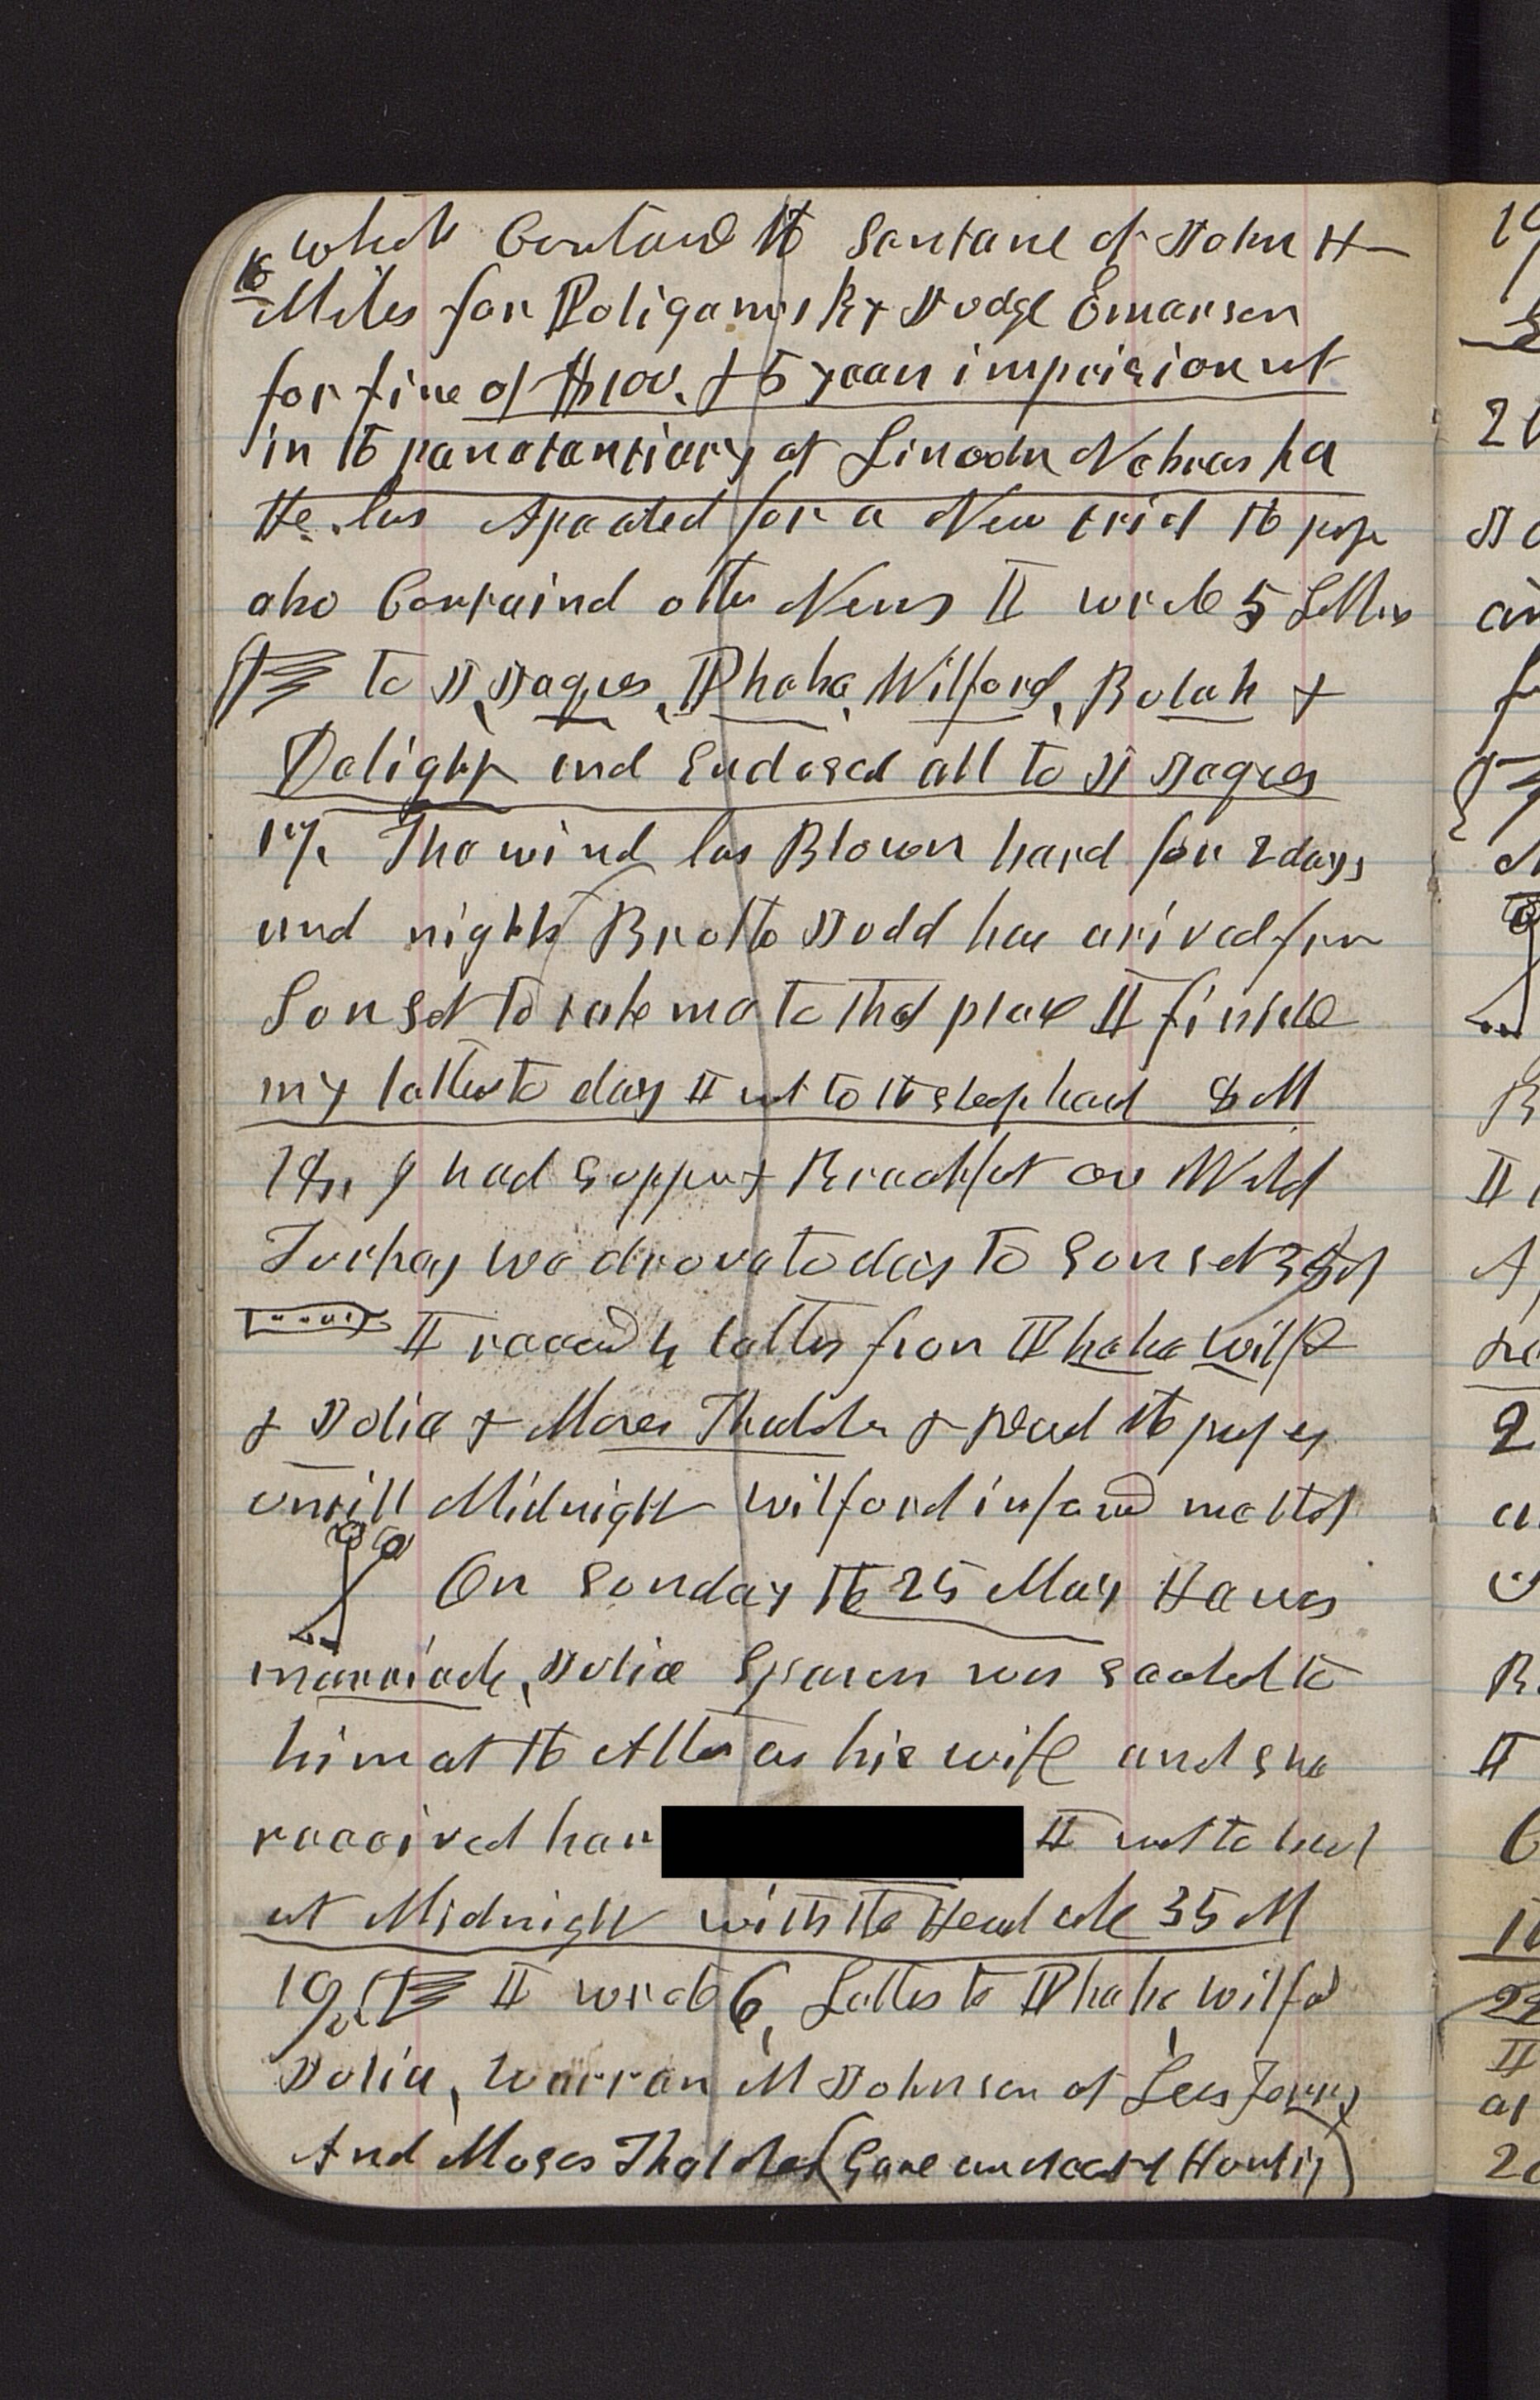 which Contand the Santanc of John H
16 Miles for Poligamy By Judge Emarson
for fine of $100. & 5 years imprisionment
in the panatantiary at Lincoln Nebraska
He has Apealed for a New trial the paper
also Contained other News I wrote 5 Letters
to J Jaques, Phebe, Wilford, Bulah &
Delight and Enclosed all to J Jaques
17. The wind has Blown hard for 2 days
and nights Brother Judd has arived from
Sonset to take me to that place I finished
my letters to day I went to the sleap heard 8 M
18. I had Supper & Breakfast on Wild
Turkey we drove to day to Sonset 35 M
I receivd 4 letters from Phebe Wilfd
& Julia & Moses Thatcher & Read the papers
untill Midnight Wilford informd me that
On Sonday the 25 May Hawes
marriade, Julia Sparen was sealed to
him at the Alter as his wife and she
received her I went to bed
at Midnight with the Head ake 35 M
19. I wrote 6, Letters to Phebe, Wilfd
Julia, Warran M Johnson at Lees Ferry
And Moses Thatcher (Gave an account Hunting)